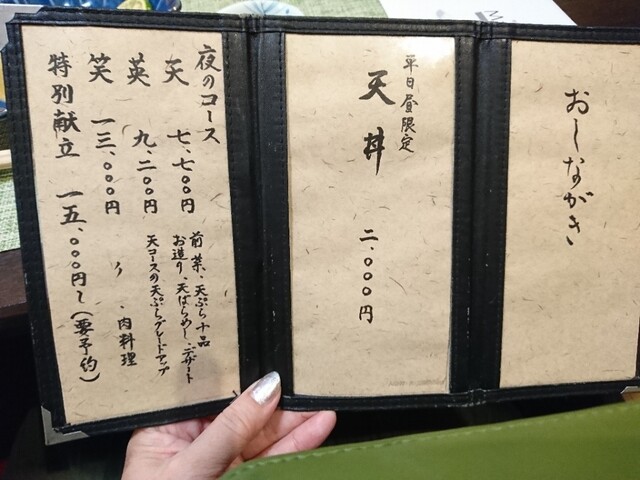 おしながき
平日昼限定
天丼 二、〇〇〇円
夜のコース
天 七、七〇〇円 前菜、天ぷら十品
お造り、天ばらめし、デザート
英 九、二〇〇円 天コースの天ぷらグレードアップ
笑 一三、〇〇〇円 〃 、肉料理
特別献立 一五、〇〇〇円〜(要予約)